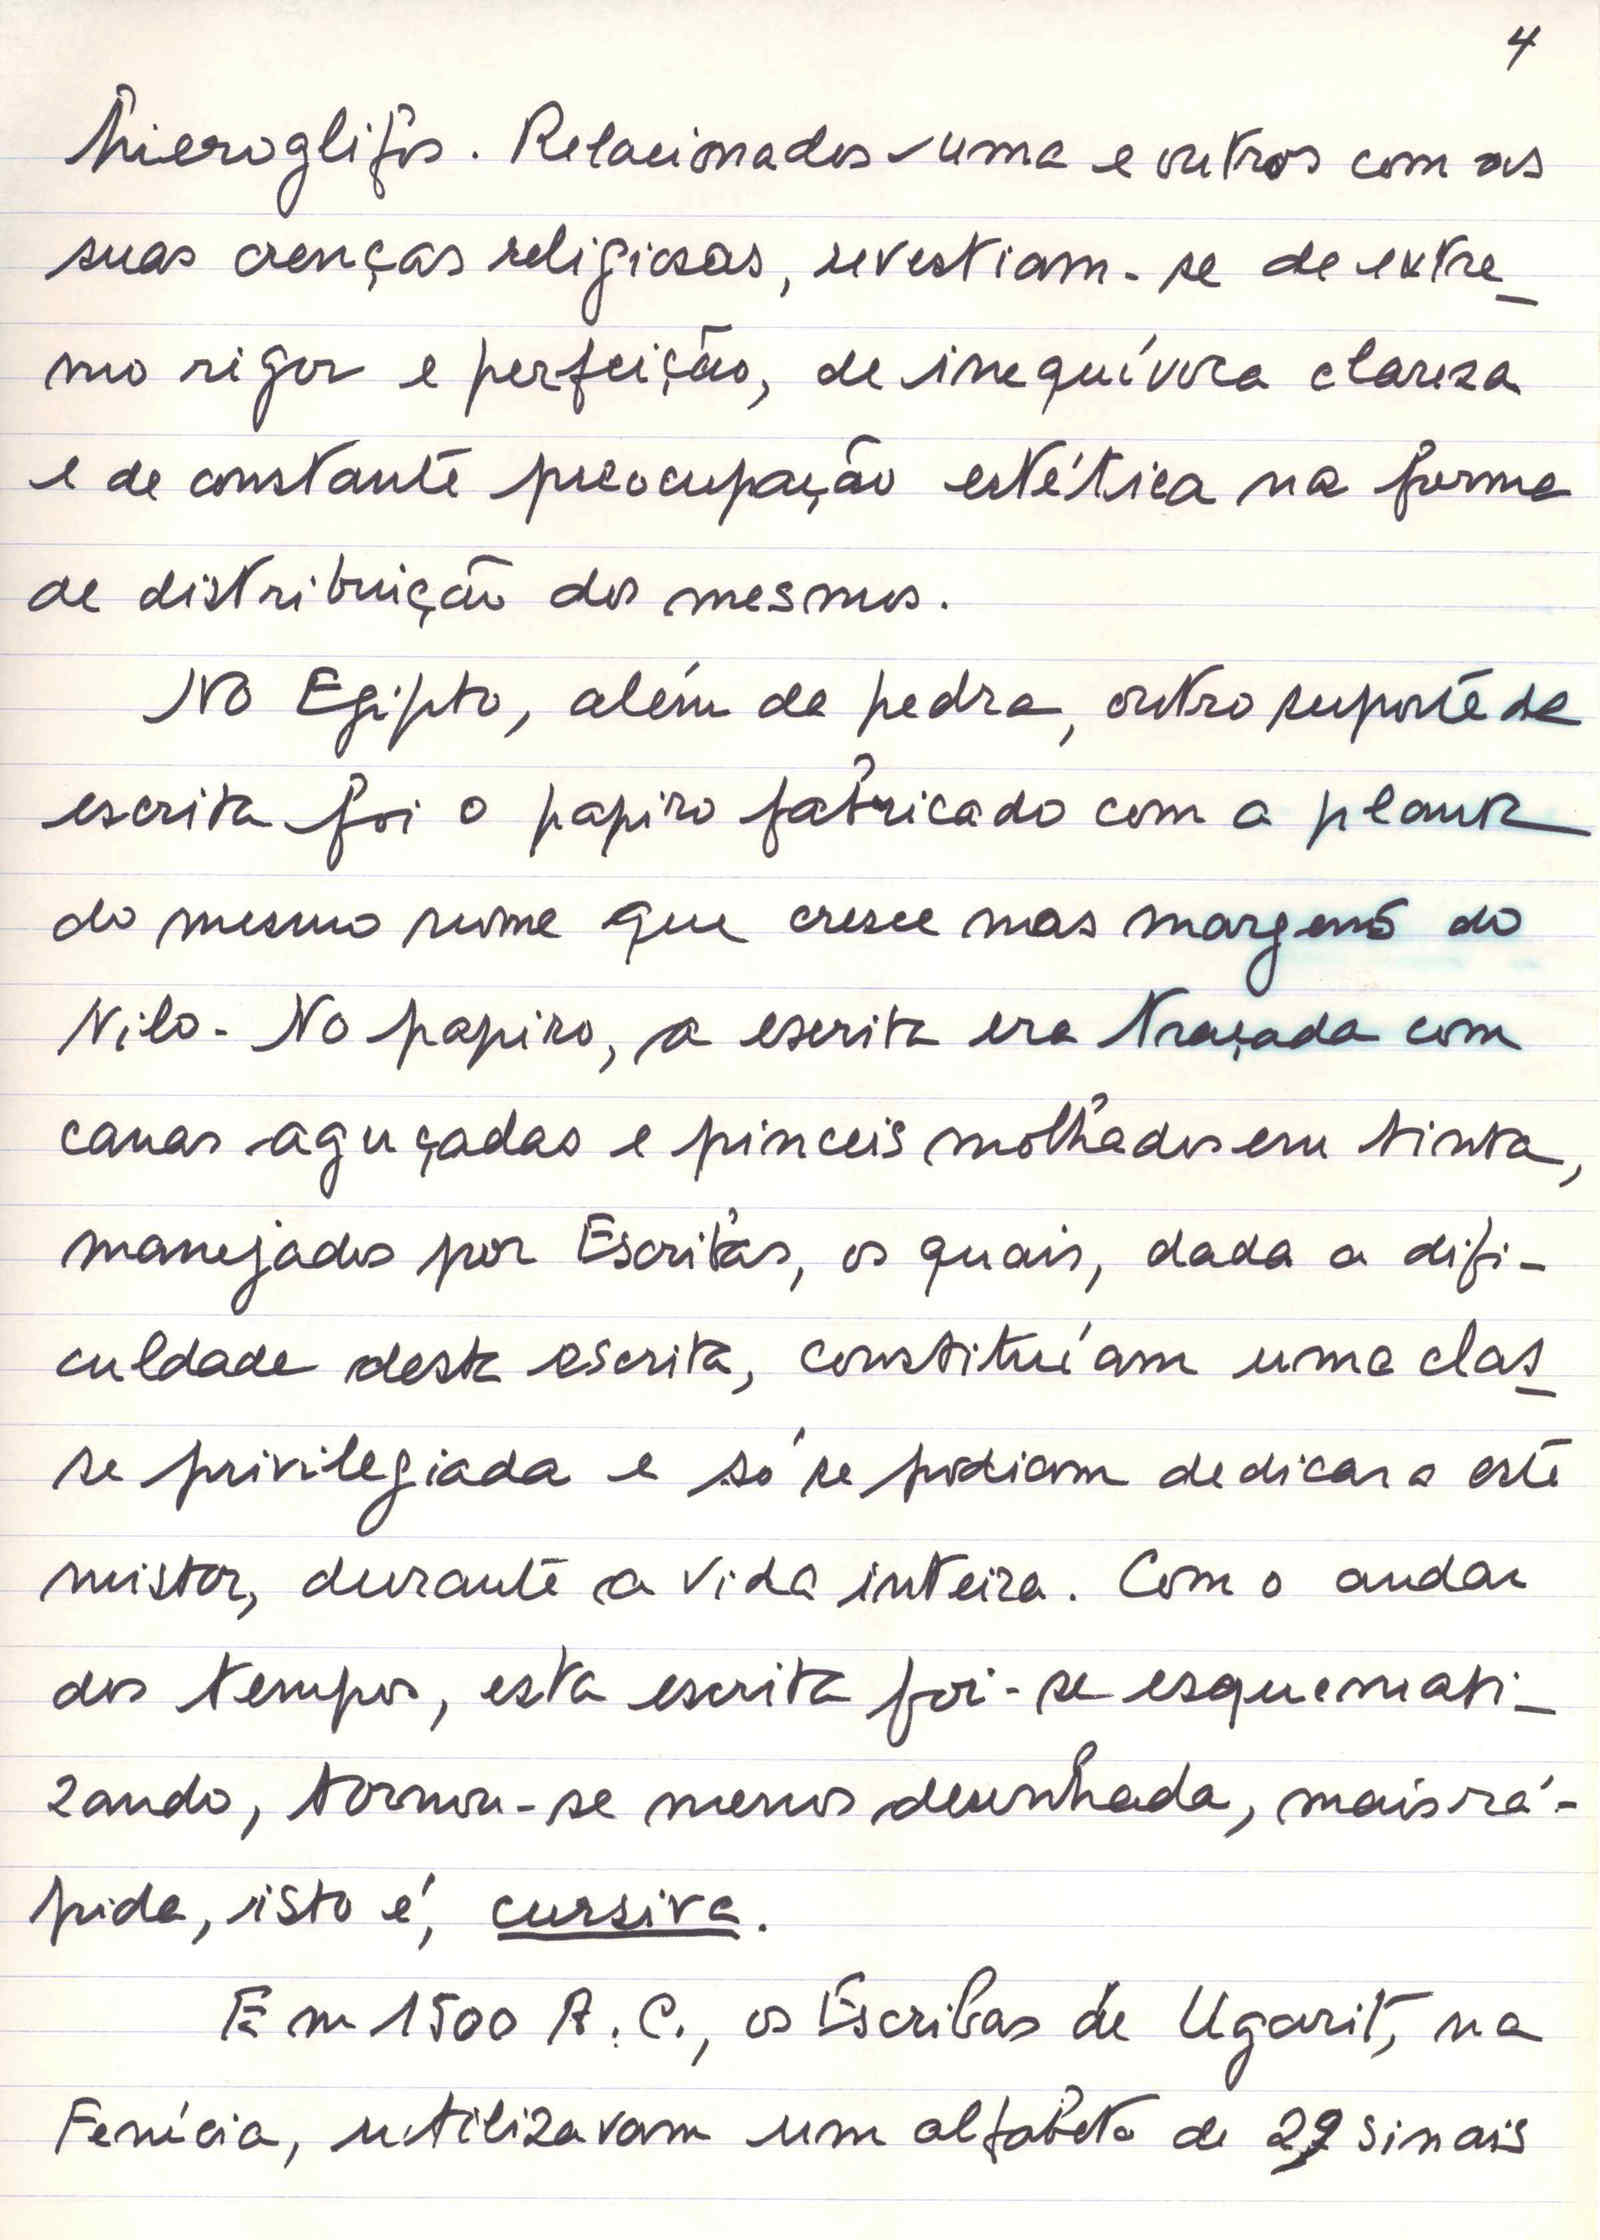 4
hieroglifos. Relacionados uma e outros com as
suas crenças religiosas, revestiam-se de extre_
mo rigor e perfeição, de inequívoca clareza
e de constante preocupação estética na forma
de distribuição dos mesmos.
No Egipto, além da pedra, outro suporte de
escrita foi o papiro fabricado com a planta
do mesmo nome que cresce nas margens do
Nilo. No papiro, a escrita era traçada com
canas aguçadas e pinceis molhados em tinta,
manejados por Escribas, os quais, dada a difi-
culdade desta escrita, constituíam uma clas_
se privilegiada e só se podiam dedicar a este
mister, durante a vida inteira. Com o andar
dos tempos, esta escrita foi-se esquemati-
zando, tornou-se menos desenhada, mais rá-
pida, isto é, cursiva.
Em 1500 A.C., os Escribas de Ugarit, na
Fenícia, utilizavam um alfabeto de sinais